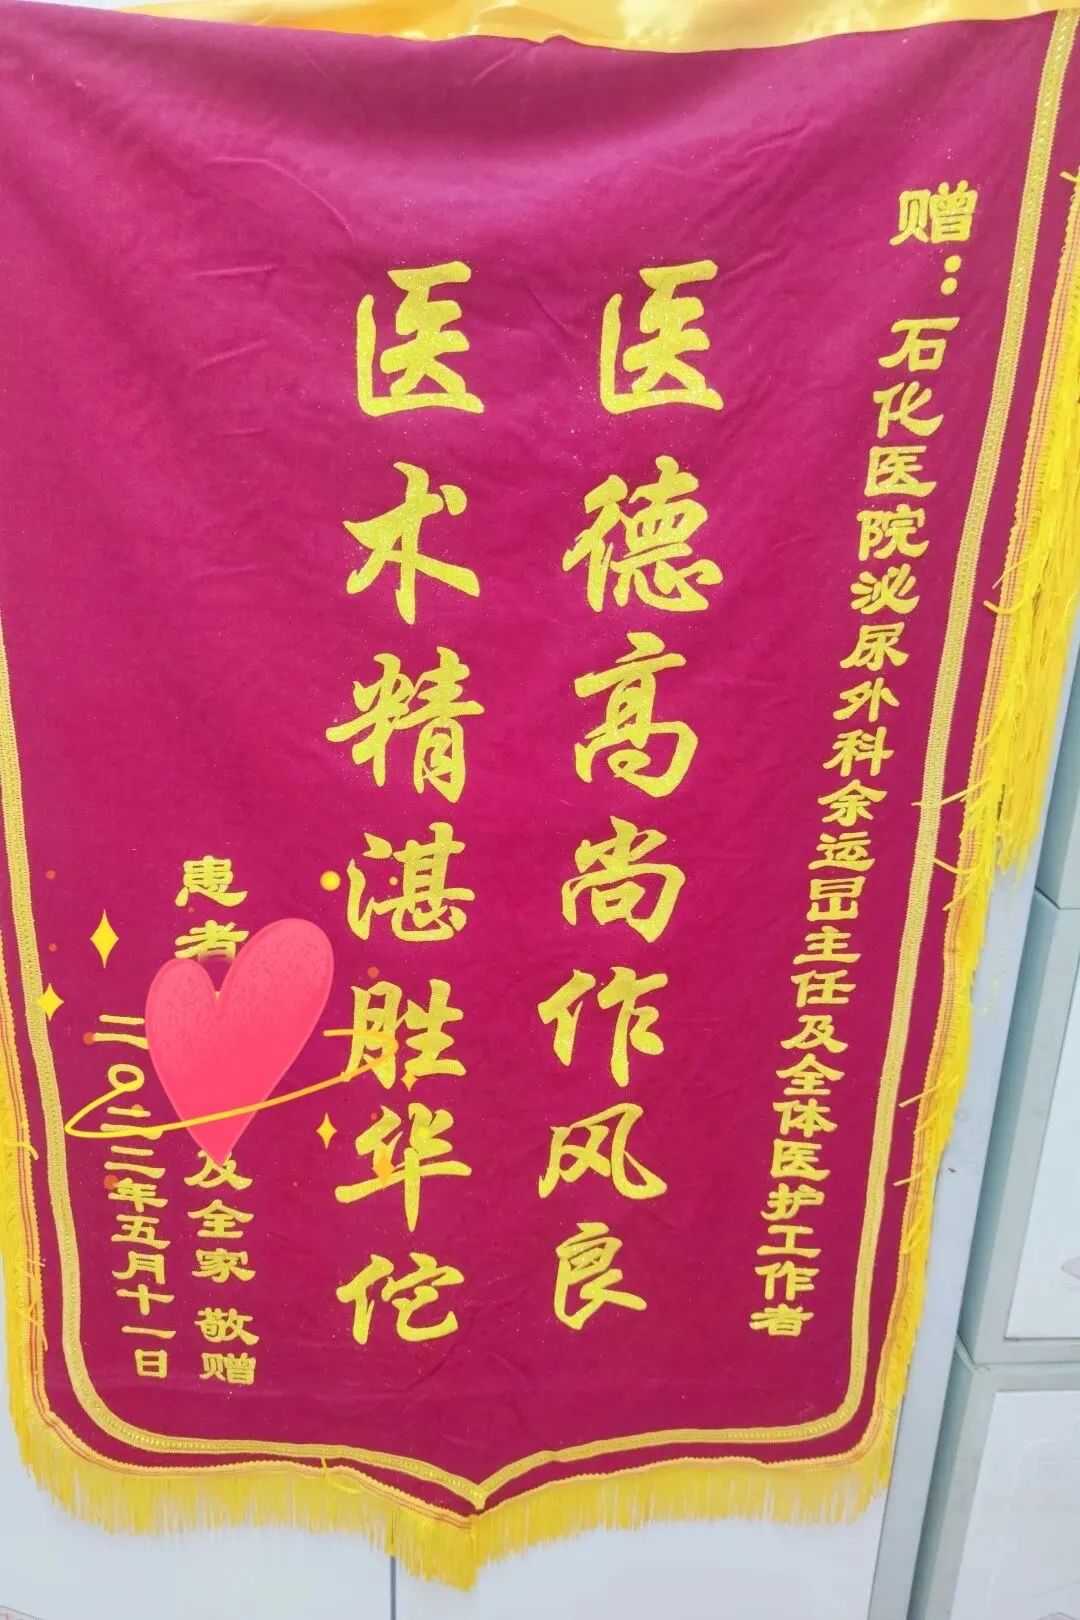 赠：石化医院泌尿外科余运昌主任及全体医护工作者
医德高尚作风良
医术精湛胜华佗
患者 及全家 敬赠
二〇二二年五月十一日